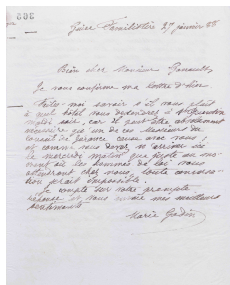 Guise Familistère 27 janvier 88
Bien cher Monsieur Pascaly,
Je vous confirme ma lettre d'hier
Faites-moi savoir s'il vous plaît
à quel hôtel vous descendrez à St Quentin
mardi soir, car il peut être absolument
nécessaire qu'un de ces Messieurs du
Conseil de Gérance cause avec vous,
et comme vous devez n'arriver ici
le mercredi matin que juste au mo-
ment où les hommes de loi nous
attendront chez nous, toute conversa-
tion serait impossible.
Je compte sur votre prompte
réponse et vous envoie mes meilleurs
sentiments
Marie Godin